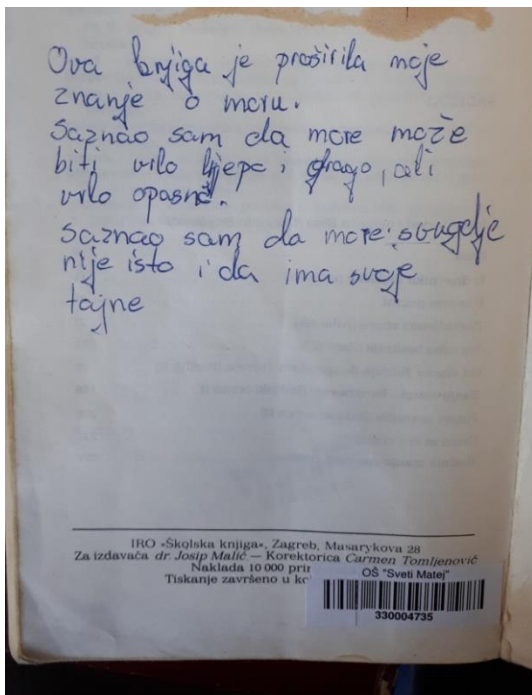 Ova knjiga je proširila moje
znanje o moru.
Saznao sam da more može
biti vrlo lijepo i drago, ali
vrlo opasno.
Saznao sam da more svugdje
nije isto i da ima svoje
tajne
IRO »Školska knjiga«, Zagreb, Masarykova 28
Za izdavača dr. Josip Malić — Korektorica Carmen Tomljenović
Naklada 10 000
Tiskanje završeno u
OŠ "Sveti Matej"
330004735